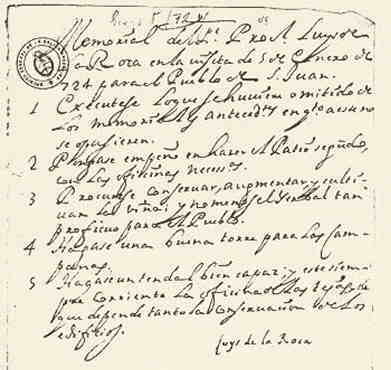 Memorial del P.e Pro.l Luys de
la Roca en la visita de 5 de Enero de
1724 para el Pueblo de S. Juan.
1 Executese lo que se huviere omitido de
los memoriales anteced.tes en q.to a esto no
se opusieren.
2 Pongase empeño en hacer el Patio segundo,
con las oficinas neces.as
3 Procurese conservar, augmentar, y culti-
var la viña: y no menos el yerbal tan
proficuo para el Pueblo.
4 Hagase una buena torre para las cam-
panas.
5 Hagase un tendal bien capaz: y este siem-
pre corriente la oficina de las texas, de
que depende tanto la conservacion de los
edificios.
Luys de la Roca